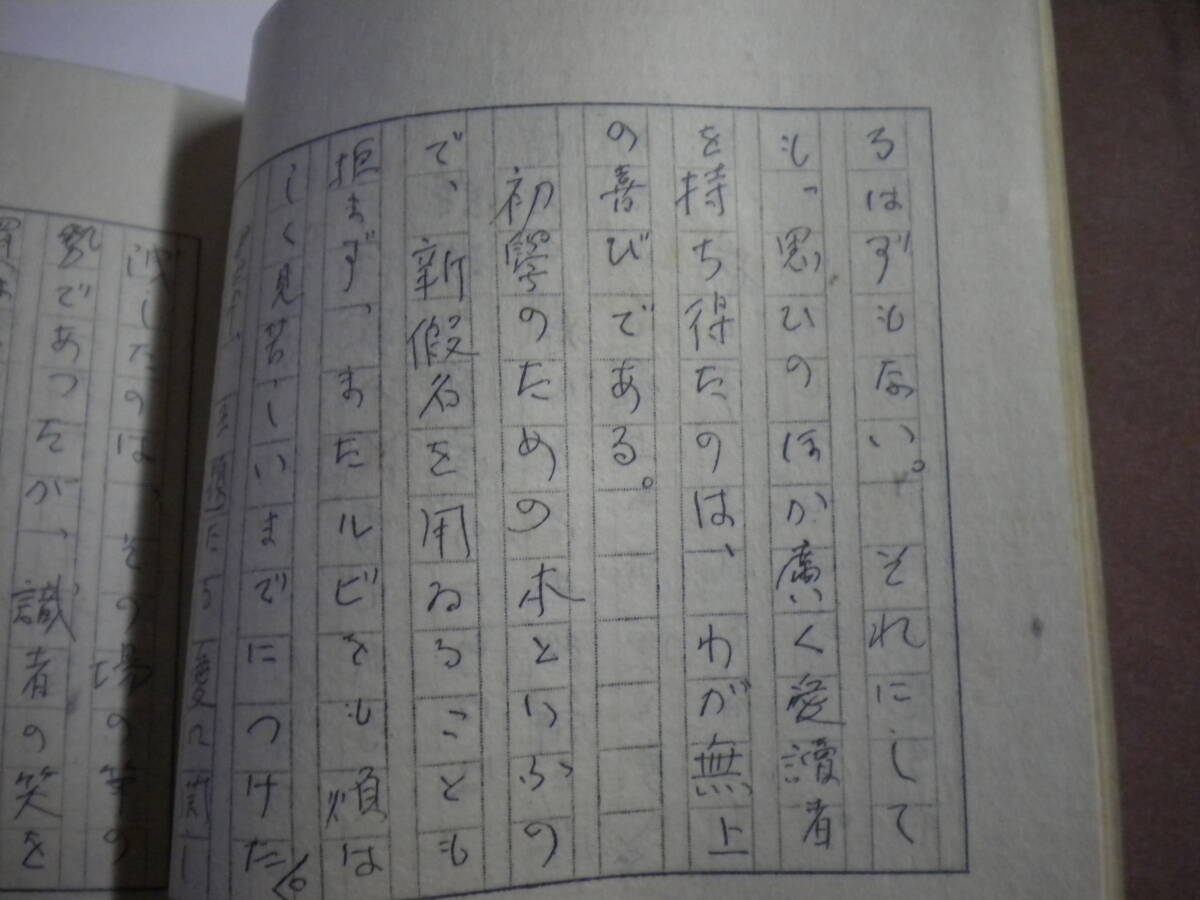 るはずもない。それにして
も、思ひのほか廣く愛讀者
を持ち得たのは、わが無上
の喜びである。
初學のための本といふの
で、新假名を用ゐることも
拒まず、またルビをも煩は
しく見苦しいまでにつけた。
したのは、その場の筆の
であつたが、識者の笑を